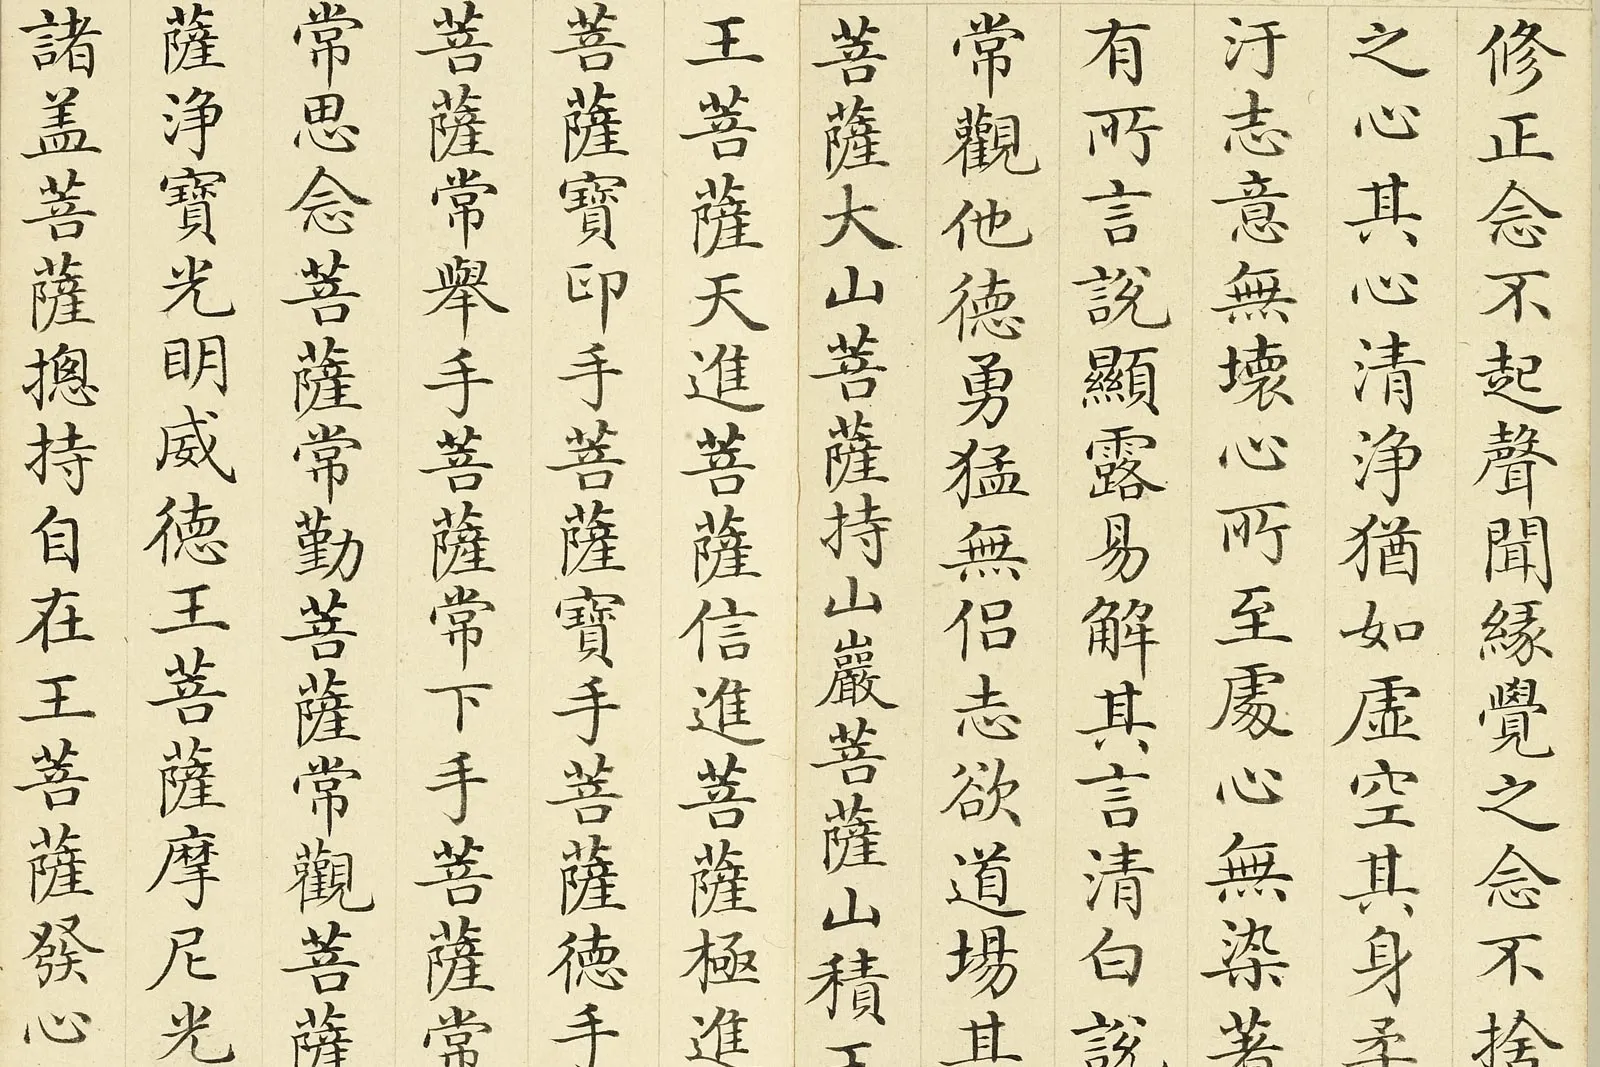 修正念不起聲聞緣覺之念不捨
之心其心清淨猶如虛空其身柔
汙志意無壞心所至處心無染著
有所言說顯露易解其言清白說
常觀他德勇猛無侶志欲道場其
菩薩大山菩薩持山巖菩薩山積王
王菩薩天進菩薩信進菩薩極進
菩薩寶印手菩薩寶手菩薩德手
菩薩常舉手菩薩常下手菩薩常
常思念菩薩常勤菩薩常觀菩薩
薩淨寶光明威德王菩薩摩尼光
諸盖菩薩揔持自在王菩薩發心